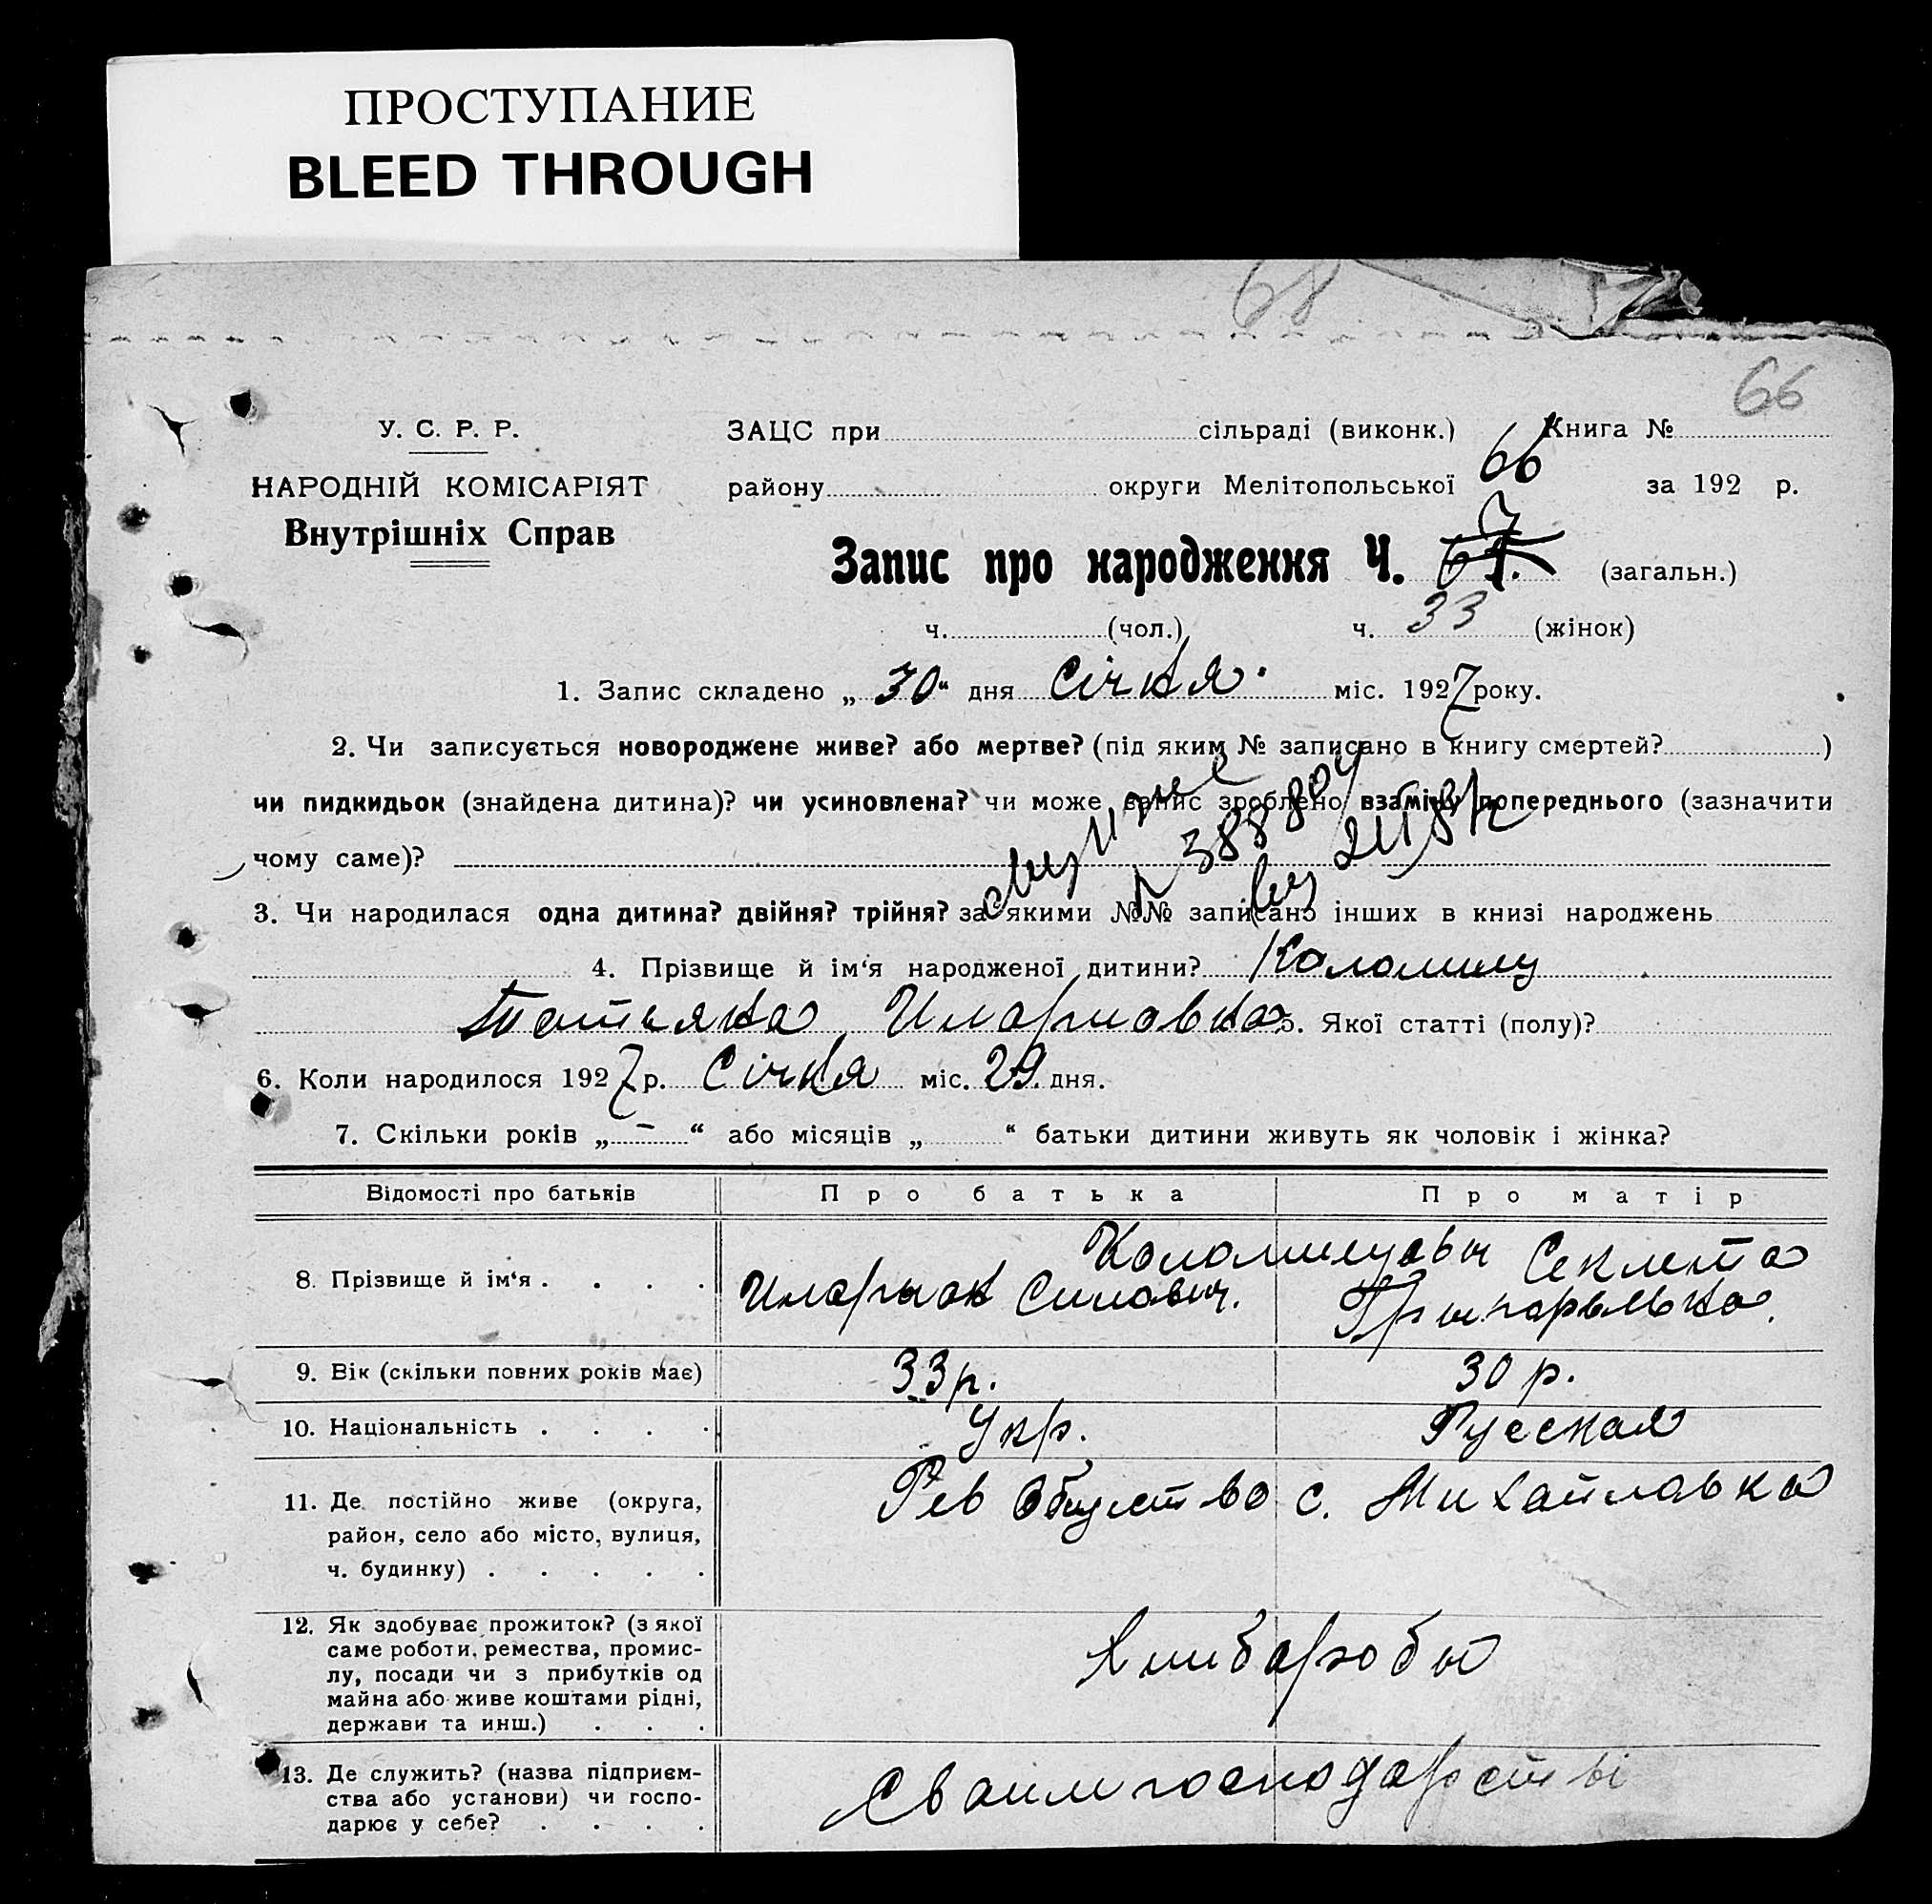 ПРОСТУПАНИЕ
BLEED THROUGH
68
66
У. С. Р. Р.
НАРОДНІЙ КОМІСАРІЯТ
Внутрішніх Справ
ЗАЦС при сільраді (виконк.) Книга №
району округи Мелітопольської 66 за 192 р.
Запис про народження Ч. 67. (загальн.)
ч. (чол.) ч. 33 (жінок)
1. Запис складено „ 30 “ дня Січня міс. 1927 року.
2. Чи записується новороджене живе? або мертве? (під яким № записано в книгу смертей? )
чи пидкидьок (знайдена дитина)? чи усиновлена? чи може запис зроблено взамін попереднього (зазначити
чому саме)?
3. Чи народилася одна дитина? двійня? трійня? за якими №№ записано інших в книзі народжень
4. Прізвище й ім‘я народженої дитини? Коломиец
Татьяна Иларповна 5. Якої статті (полу)?
6. Коли народилося 1927 р. Січня міс. 29 дня.
7. Скільки років „ – “ або місяців „ “ батьки дитини живуть як чоловік і жінка?
Відомості про батьків Про батька Про матір
8. Прізвище й ім‘я . . . .
Секлета
Силович.
9. Вік (скільки повних років має) 33 р. 30 р.
10. Національність . . . . Укр. Русская
11. Де постійно живе (округа, Рев Общество с. Михайловка
район, село або місто, вулиця,
ч. будинку) . . . . .
12. Як здобуває прожиток? (з якої
саме роботи, ремества, промис-
лу, посади чи з прибутків од
майна або живе коштами рідні,
держави та инш.) . . .
Хлибаробы
13. Де служить? (назва підприєм-
ства або установи) чи госпо-
дарює у себе? . . . .
Сваим господарстві